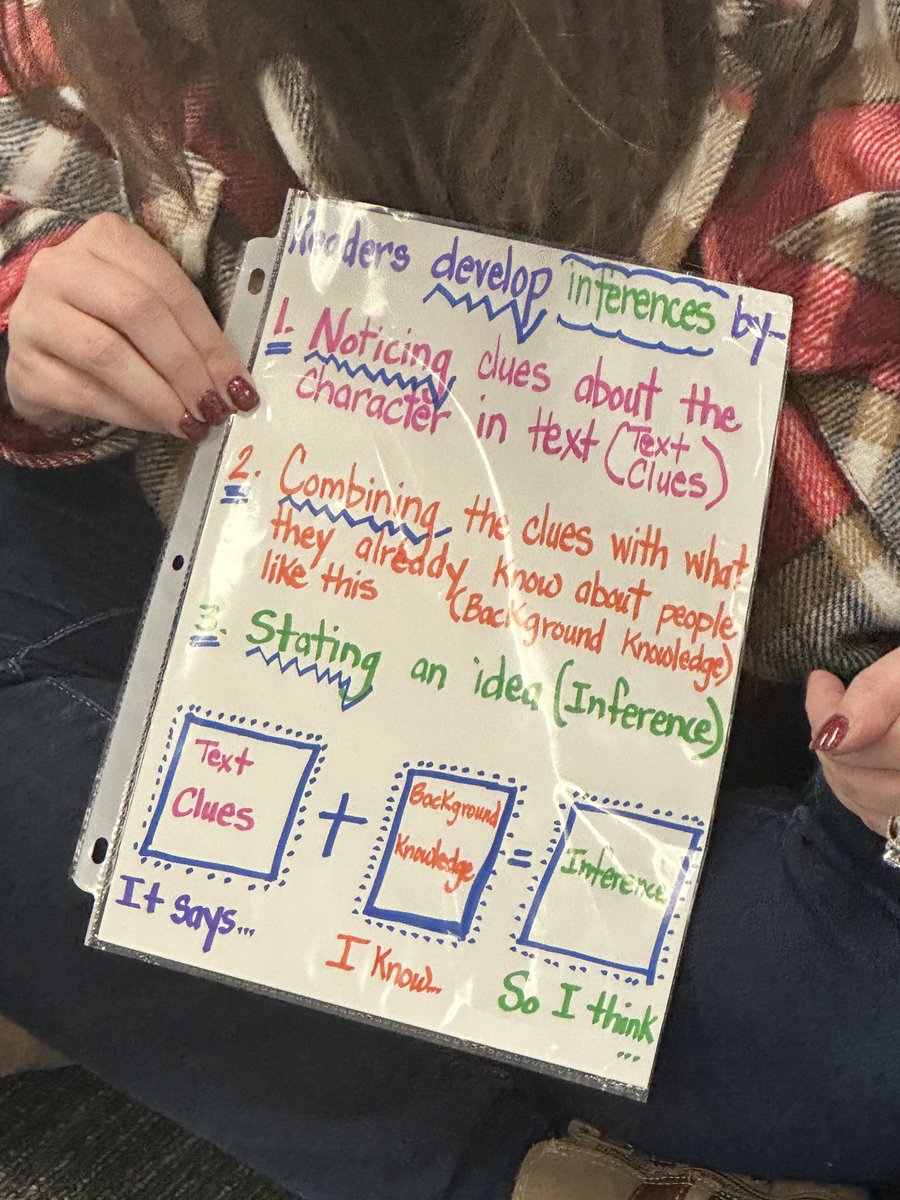 Readers develop inferences by-
1. Noticing clues about the
character in text (Text Clues)
2. Combining the clues with what
they already know about people
like this (Background Knowledge)
3. Stating an idea (Inference)
Text Clues + Background Knowledge = Inference
It says... I know... So I think ...